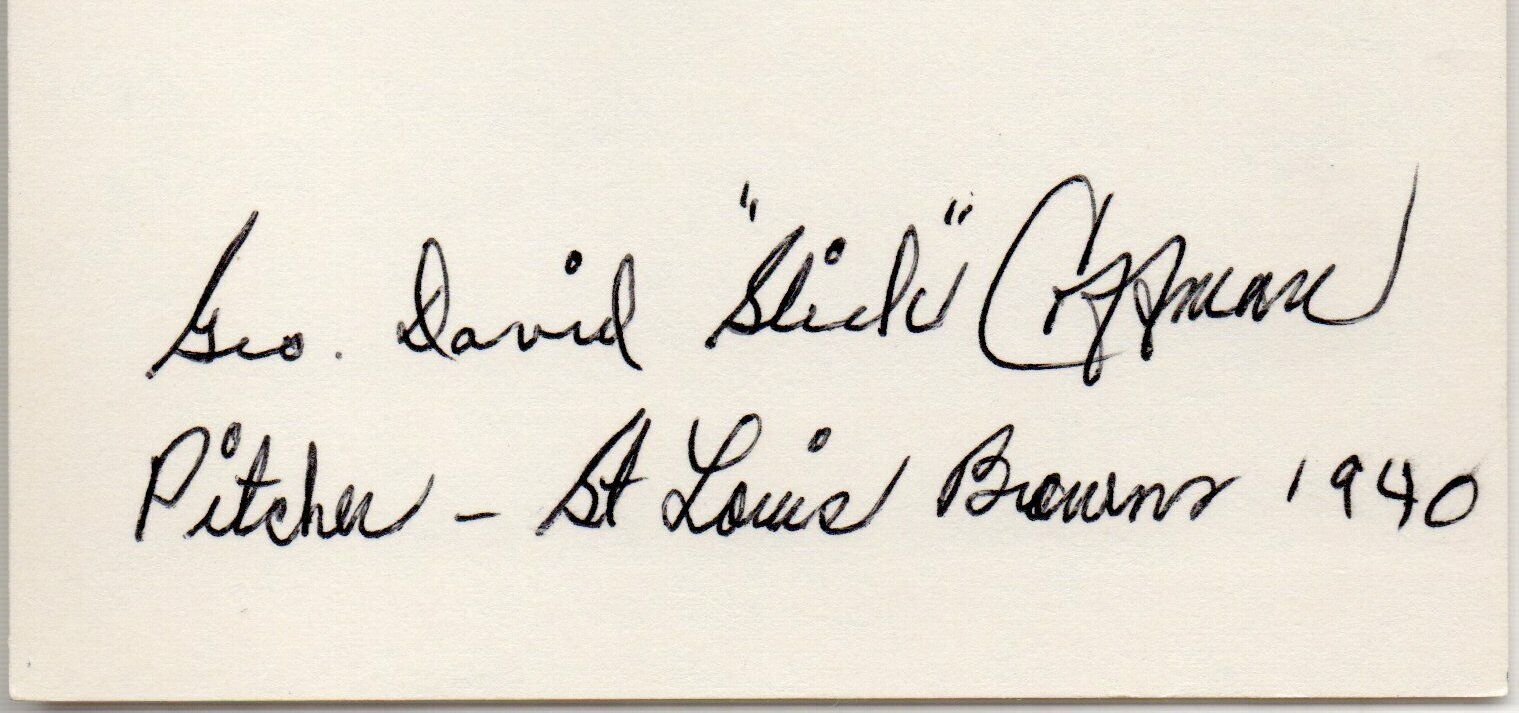 Geo. David "Slick" Coffman
Pitcher - St Louis Browns 1940